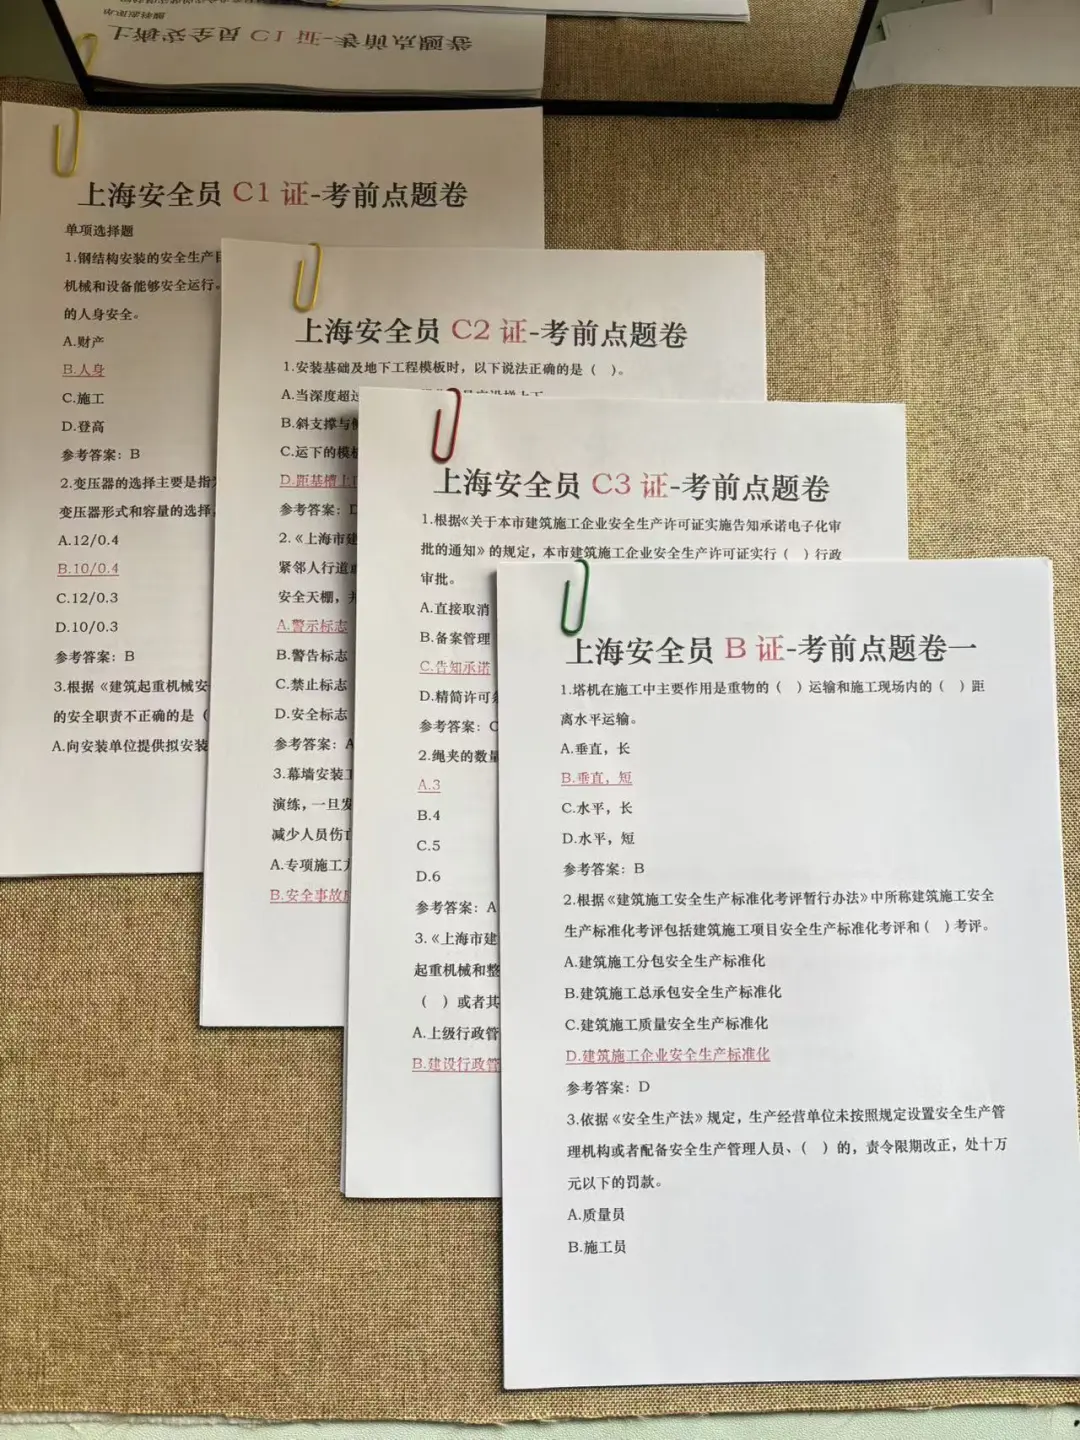 上海安全员 C1 证-考前点题卷
上海安全员 C1 证-考前点题卷
单项选择题
1.钢结构安装的安全生产
机械和设备能够安全运行,
的人身安全。
A.财产
B.人身
C.施工
D.登高
参考答案：B
2.变压器的选择主要是指
变压器形式和容量的选择
A.12/0.4
B.10/0.4
C.12/0.3
D.10/0.3
参考答案：B
3.根据《建筑起重机械安
的安全职责不正确的是（
A.向安装单位提供拟安装
上海安全员 C2 证-考前点题卷
1.安装基础及地下工程模板时，以下说法正确的是（　）。
A.当深度超过
B.斜支撑与
C.运下的模板
D.距基槽上
参考答案：D
2.《上海市建
紧邻人行道
安全天棚，
A.警示标志
B.警告标志
C.禁止标志
D.安全标志
参考答案：A
3.幕墙安装工
演练，一旦发
减少人员伤亡
A.专项施工方
B.安全事故
上海安全员 C3 证-考前点题卷
1.根据《关于本市建筑施工企业安全生产许可证实施告知承诺电子化审
批的通知》的规定，本市建筑施工企业安全生产许可证实行（　）行政
审批。
A.直接取消
B.备案管理
C.告知承诺
D.精简许可
参考答案：C
2.绳夹的数量
A.3
B.4
C.5
D.6
参考答案：A
3.《上海市建
起重机械和整
（　）或者其
A.上级行政管
B.建设行政管
上海安全员 B 证-考前点题卷一
1.塔机在施工中主要作用是重物的（　）运输和施工现场内的（　）距
离水平运输。
A.垂直，长
B.垂直，短
C.水平，长
D.水平，短
参考答案：B
2.根据《建筑施工安全生产标准化考评暂行办法》中所称建筑施工安全
生产标准化考评包括建筑施工项目安全生产标准化考评和（　）考评。
A.建筑施工分包安全生产标准化
B.建筑施工总承包安全生产标准化
C.建筑施工质量安全生产标准化
D.建筑施工企业安全生产标准化
参考答案：D
3.依据《安全生产法》规定，生产经营单位未按照规定设置安全生产管
理机构或者配备安全生产管理人员、（　）的，责令限期改正，处十万
元以下的罚款。
A.质量员
B.施工员